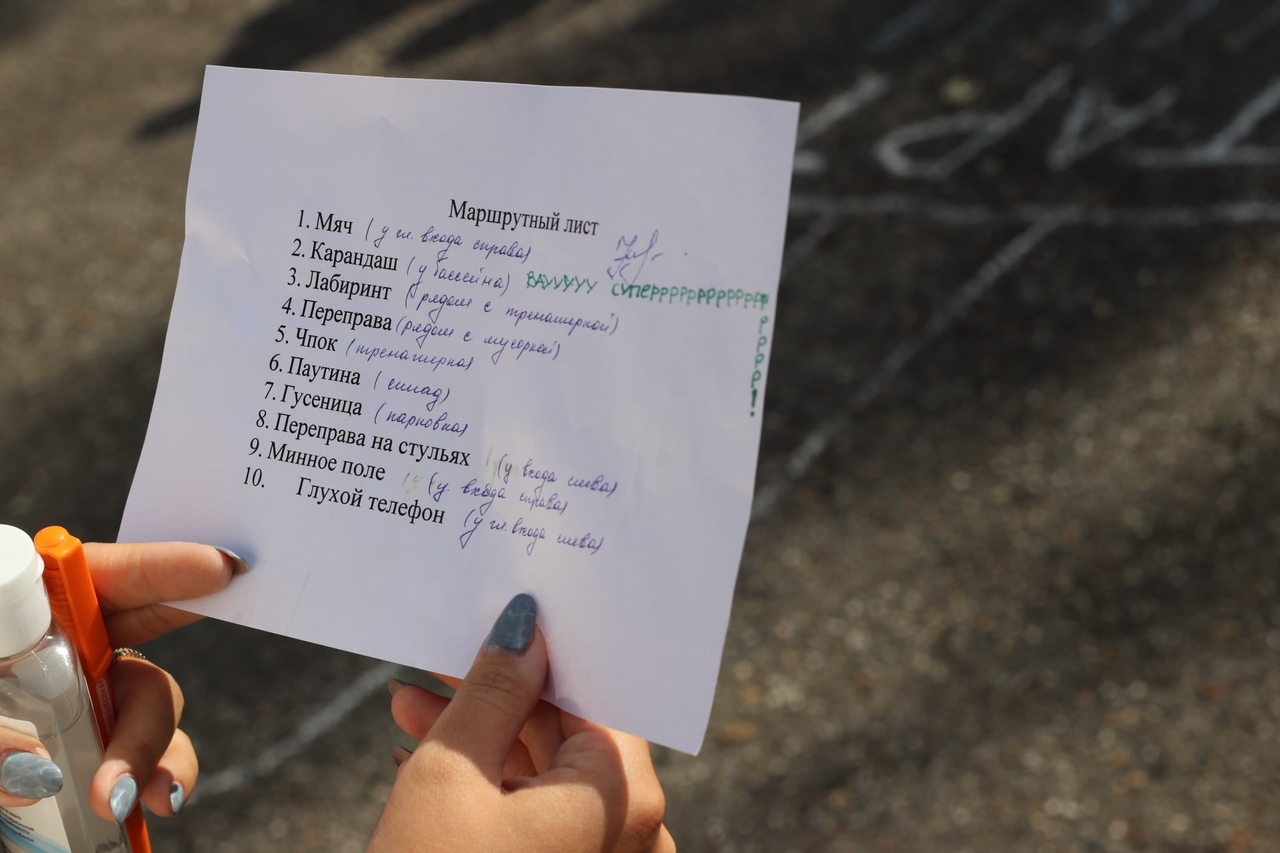 Маршрутный лист
1. Мяч (у гл. входа справа)
2. Карандаш (у бассейна) ВАУУУУ СУПЕРРРРРРРРРРРРРРРРР!
3. Лабиринт (рядом с тренажеркой)
4. Переправа (рядом с мусоркой)
5. Чпок (тренажерка)
6. Паутина (склад)
7. Гусеница (парковка)
8. Переправа на стульях (у входа слева)
9. Минное поле (у входа справа)
10. Глухой телефон (у гл. входа слева)